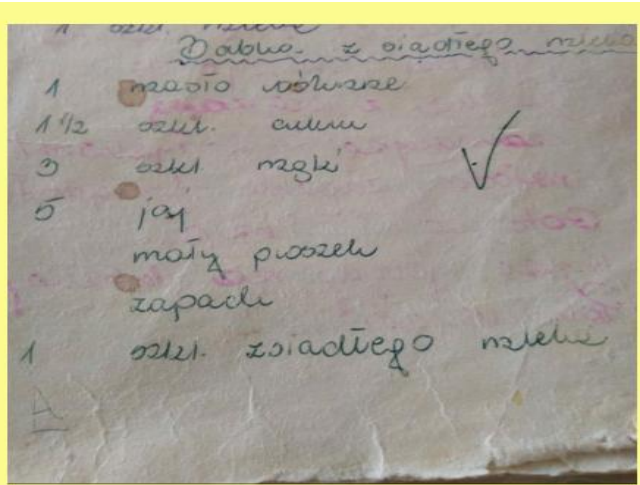 1 szkl. mleka
Babka z siadłego mleka
1 masło roślinne
1 1/2 szkl. cukru
3 szkl mąki
5 jaj
mały proszek
zapach
1 szkl. zsiadłego mleka
A